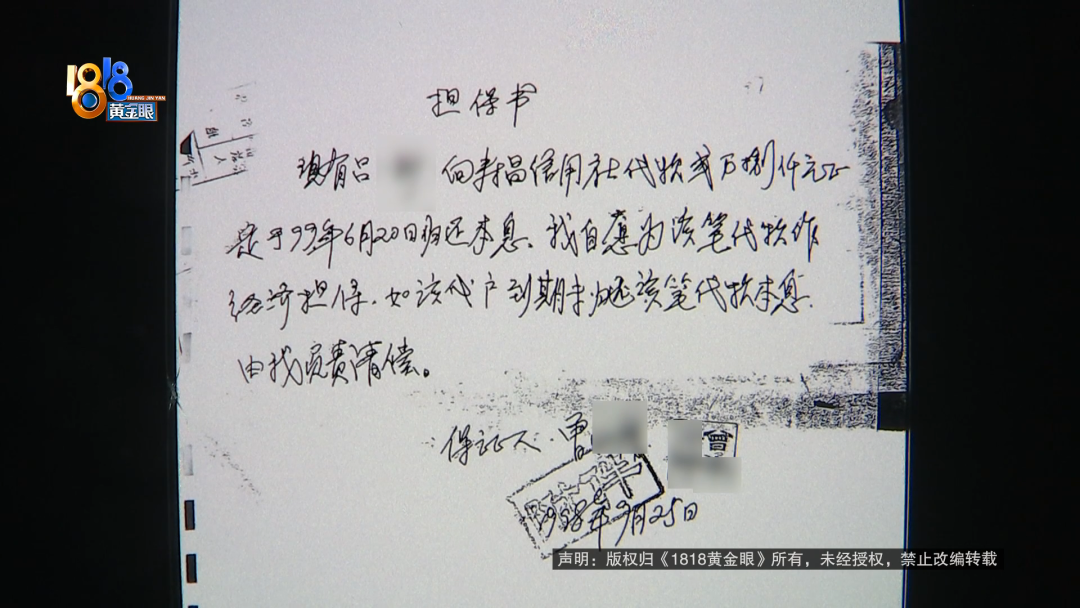 1818
HUANG JIN YAN
黄金眼
担保书
现有吕 向寿昌信用社代款贰万捌仟元正
定于99年6月20日归还本息、我自愿为该笔代款作
经济担保,如该代户到期未归还该笔代款本息.
由我负责清偿。
保证人 曾
曾
1998年9月25日
声明：版权归《1818黄金眼》所有，未经授权，禁止改编转载